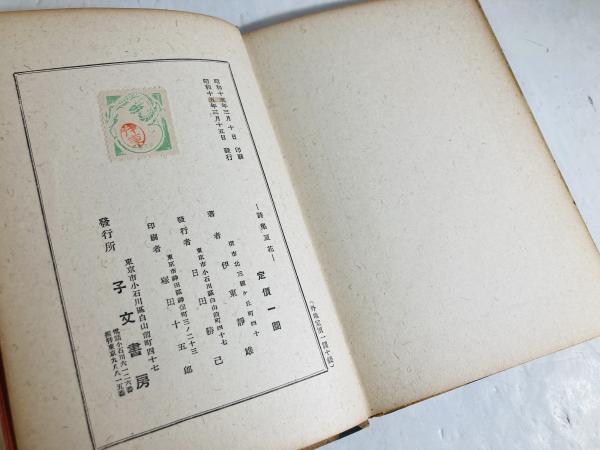 昭和十五年三月十日 印刷
昭和十五年三月十五日 發行
―詩集夏花―
定價一圓
(外地定價一圓十錢)
堺市北三國ヶ丘町四十
著者 伊東靜雄
東京市小石川區白山前町四十七
發行者 日田勝己
東京市神田區神保町三ノ二十三
印刷者 堀田十五郎
發行所
東京市小石川區白山前町四十七
子文書房
電話小石川六一二六番